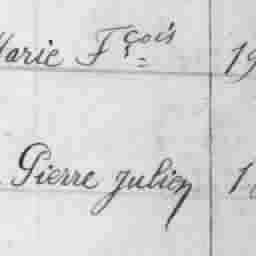 Marie Fçois 19
Pierre Julien 1